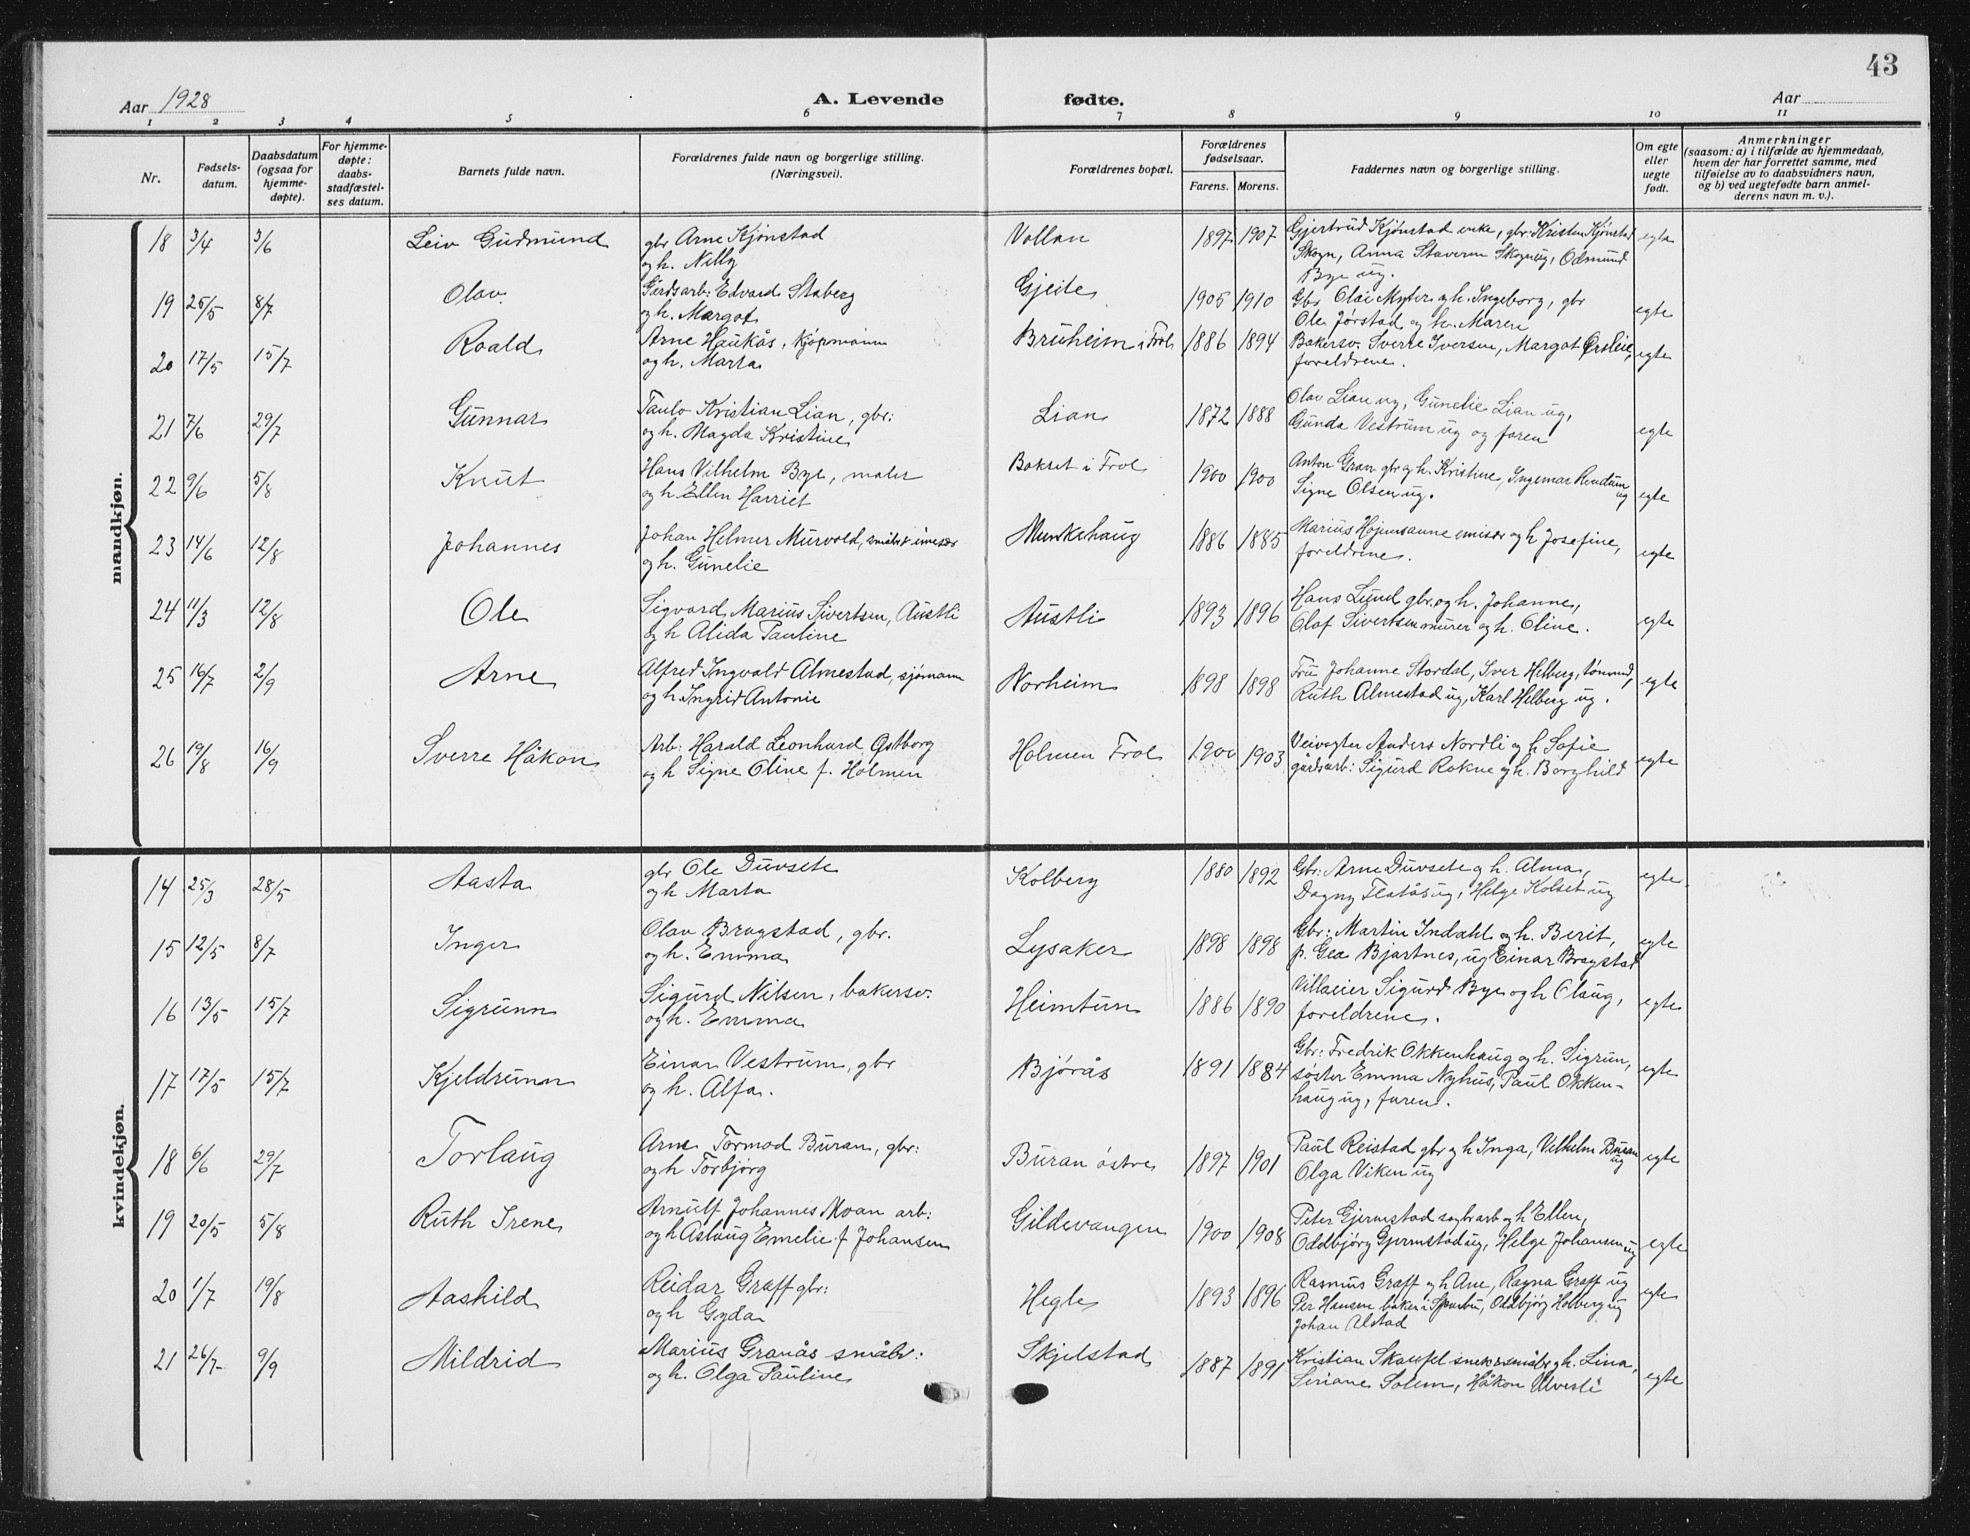 43
Aar 1928
A. Levende
fødte.
Aar
1 2 3 4 5 6 7 8 9 10 11
Nr.
Fødsels-
datum.
Daabsdatum
(ogsaa for
hjemme-
døpte).
For hjemme-
døpte:
daabs-
stadfæstel-
ses datum.
Barnets fulde navn.
Forældrenes fulde navn og borgerlige stilling.
(Næringsvei).
Forældrenes bopæl.
Forældrenes
fødselsaar.
Farens. Morens.
Faddernes navn og borgerlige stilling.
Om egte
eller
uegte
født.
Anmerkninger
(saasom: a) i tilfælde av hjemmedaab,
hvem der har forrettet samme, med
tilføielse av to daabsvidners navn,
og b) ved uegtefødte barn anmel-
derens navn m. v.).
mandkjøn.
18 3/4 3/6 Leiv Gudmund gbr Arne Kjønstad Vollan 1897 1907 Gjertrud Kjønstad enke, gbr. Kristen Kjønstad egte
og h. Nelly Skogn, Anna Staveren Skogn ug, Odmund
Bye ug.
19 25/5 8/7 Olav Gårdsarb: Edvard Staberg Gjeite 1905 1910 Gbr Olai Myter og h. Ingeborg, gbr egte
og h. Margot Ole Jørstad og h. Maren
20 17/5 15/7 Roald Arne Haukås, kjøpmann Bruheim i Frol 1886 1894 Bakersv. Sverre Iversen, Margot egte
og h. Marta foreldrene.
21 7/6 29/7 Gunnar Paulo Kristian Lian, gbr: Lian 1872 1888 Olav Lian ug, Gunelie Lian ug, egte
og h. Magda Kristine Gunda Vestrum ug og faren
22 9/6 5/8 Knut Hans Vilhelm Bye, maler Bakset i Frol 1900 1900 Anton Gran gbr og h. Kristine, Ingemar ug egte
og h. Ellen Harriet Signe Olsen ug.
23 14/6 12/8 Johannes Johan Helmer Murvold, Munkehaug 1886 1885 Marius emisær og h Josefine, egte
og h. Gunelie foreldrene.
24 11/3 12/8 Ole Sigvard Marius Sivertsen, Austli Austli 1893 1896 Hans Lund gbr. og h. Johanne, egte
og h Alida Pauline Olaf Sivertsen murer og h. Oline.
25 16/7 2/9 Arne Alfred Ingvald Almestad, sjømann Norheim 1898 1898 Fru Johanne Stordal, Iver Helberg, tømmerm, egte
og h. Ingrid Antonie Ruth Almestad ug, Karl Helberg ug.
26 19/8 16/9 Sverre Håkon Arb: Harald Leonhard Østborg Holmen Frol 1900 1903 Veivogter Anders Nordli og h Sofie egte
og h Signe Oline f. Holmen gårdsarb: Sigurd Rokne og h. Borghild
kvindekjøn.
14 25/3 28/5 Aasta gbr Ole Duvsete Kolberg 1880 1892 Gbr: Arne Duvsete og h. Alma, egte.
og h Marta Dagny Flatås ug, Helge Kolset ug
15 12/5 8/7 Inger Olav Bragstad, gbr. Lysaker 1898 1898 Gbr: Martin Indahl og h. Berit, egte
og h. Emma p. Gea Bjartnes, ug Einar Bragstad
16 13/5 15/7 Sigrunn Sigurd Nilsen, bakersv. Heimtun 1886 1890 Villaeier Sigurd Bye og h Olaug, egte
og h. Emma foreldrene.
17 17/5 15/7 Kjeldrunn Einar Vestrum, gbr Bjørås 1891 1884 Gbr: Fredrik Okkenhaug og h. Sigrun, egte
og h. Alfa. søster Emma Nyhus, Paul Okken-
haug ug, faren.
18 6/6 29/7 Torlaug Arne Tormod Buran, gbr: Buran østre 1897 1901 Paul Reistad gbr og h Inga, Vilhelm Buran ug egte
og h Torbjørg Olga Viken ug
19 20/5 5/8 Ruth Irene Arnulf Johannes Moan arb: Gildevangen 1900 1908 Peter Gjermstad sagbrarb og h Ellen, egte
og h Aslaug Emelie f Johansen Oddbjørg Gjermstad ug, Helge Johansen ug
20 1/7 19/8 Aashild Reidar Graff gbr: Hegle 1893 1896 Rasmus Graff og h Ane, Ragna Graff ug egte
og h Gyda Per Hansen baker i Sparbu, Oddbjørg Holberg ug
Johan Alstad
21 26/7 9/9 Mildrid Marius Granås småbr: Skjelstad 1887 1891 Kristian Skaufel snek. småbr og h. Lina, egte
og h. Olga Pauline Seriane Solem, Håkon Ulvesli